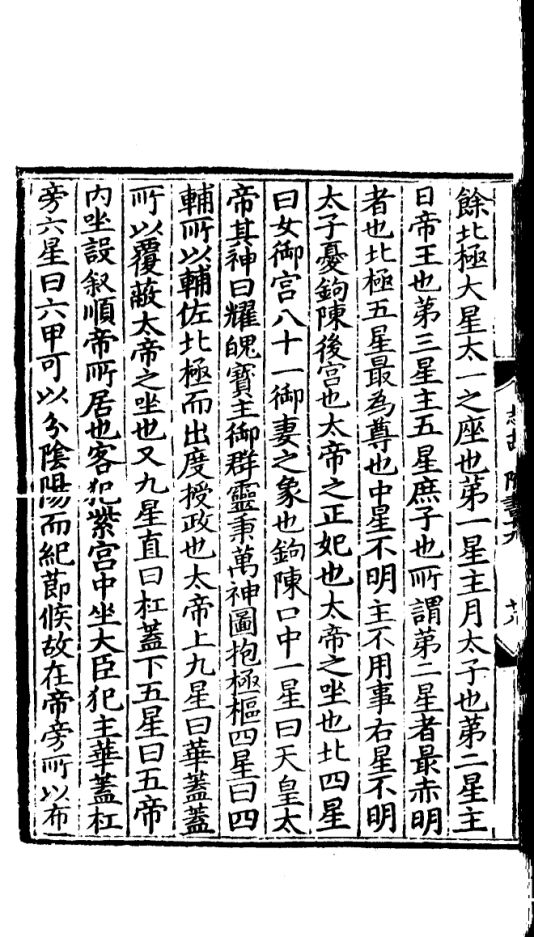 餘北極大星太一之座也苐一星主月太子也第二星主
日帝王也第三星主五星庶子也所謂第二星者最赤明
者也北極五星最為尊也中星不明主不用事右星不明
太子憂鉤陳後宮也太帝之正妃也太帝之坐也北四星
曰女御宮八十一御妻之象也鉤陳口中一星曰天皇太
帝其神曰耀魄寶主御群靈秉萬神圖抱極樞四星曰四
輔所以輔佐北極而出度授政也太帝上九星曰華蓋蓋
所以覆蔽太帝之坐也又九星直曰杠蓋下五星曰五帝
內坐設叙順帝所居也客犯紫宮中坐大臣犯主華蓋杠
旁六星曰六甲可以分陰陽而紀節候故在帝旁所以布